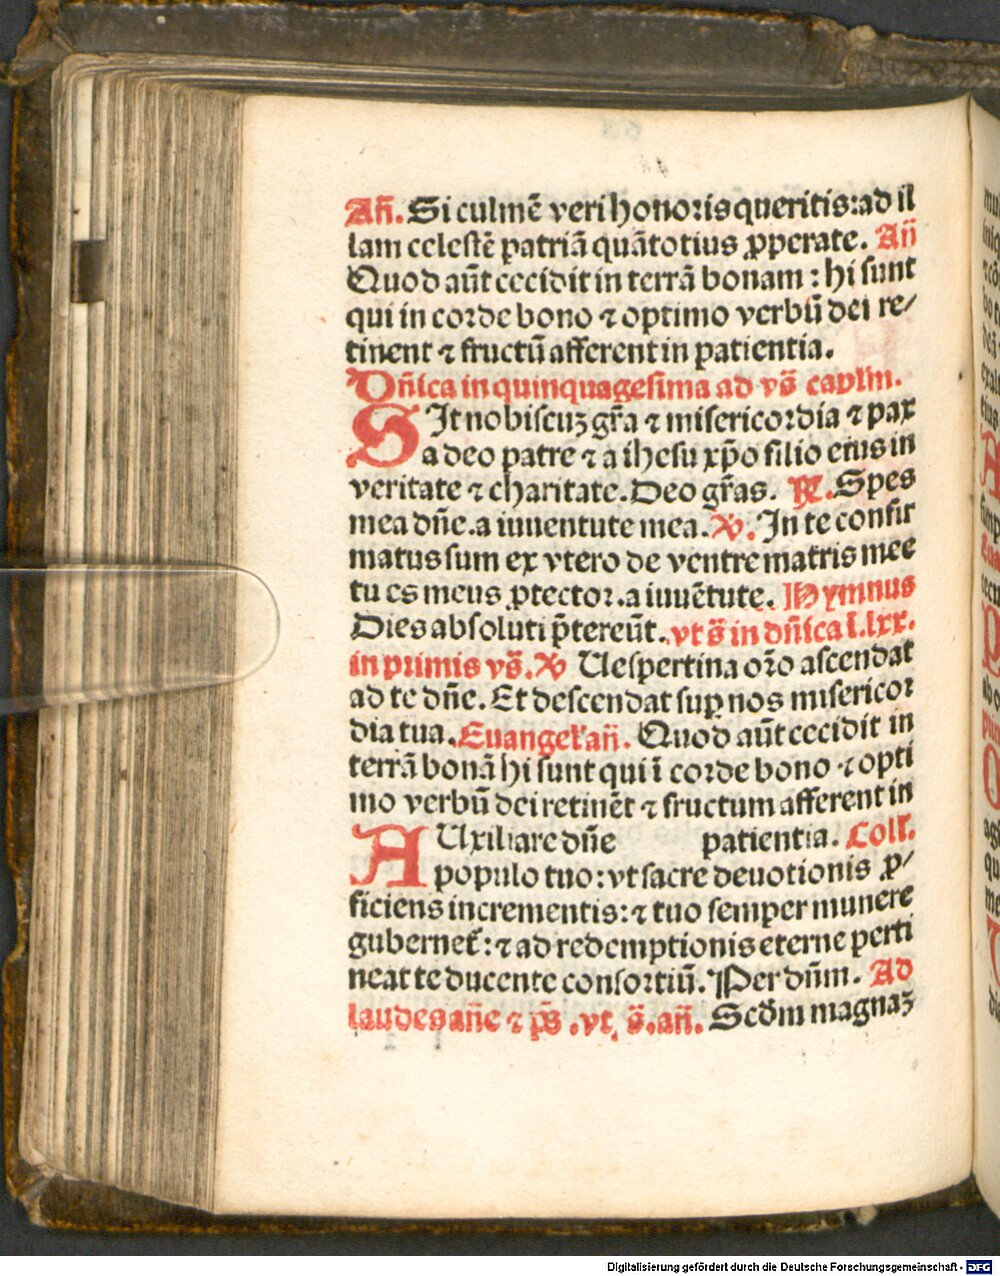 Añ. Si culmē veri honoris queritis: ad il
lam celestē patriā quātotius ꝓperate. Añ
Quod aūt cecidit in terrā bonam : hi sunt
qui in corde bono ⁊ optimo verbū dei re/
tinent ⁊ fructū afferent in patientia.
Dñica in quinquagesima ad vs̄ caplm.
SIt nobiscuꝫ gr̄a ⁊ misericordia ⁊ pax
a deo patre ⁊ a ihesu xp̄o filio eius in
veritate ⁊ charitate. Deo gr̄as. ℟. Spes
mea dñe. a iuuentute mea. ℣. In te confir
matus sum ex vtero de ventre matris mee
tu es meus ꝓtector. a iuuētute. Hymnus
Dies absoluti p̄tereūt. vt s̄ in dñica l.lxx.
in primis vs̄. ℣ Uespertina oro ascendat
ad te dñe. Et descendat suꝑ nos misericor
dia tua. Euangel' añ. Quod aūt cecidit in
terrā bonā hi sunt qui ī corde bono ⁊ opti
mo verbū dei retinēt ⁊ fructum afferent in
AUxiliare dñe patientia. Coll'.
populo tuo: vt sacre deuotionis ꝓ/
ficiens incrementis: ⁊ tuo semper munere
gubernet̄: ⁊ ad redemptionis eterne perti
neat te ducente consortiū. Per dñm. Ad
laudes añe ⁊ ps̄ .vt. s̄. añ. Scd̄m magnaꝫ
Digitalisierung gefördert durch die Deutsche Forschungsgemeinschaft - DFG